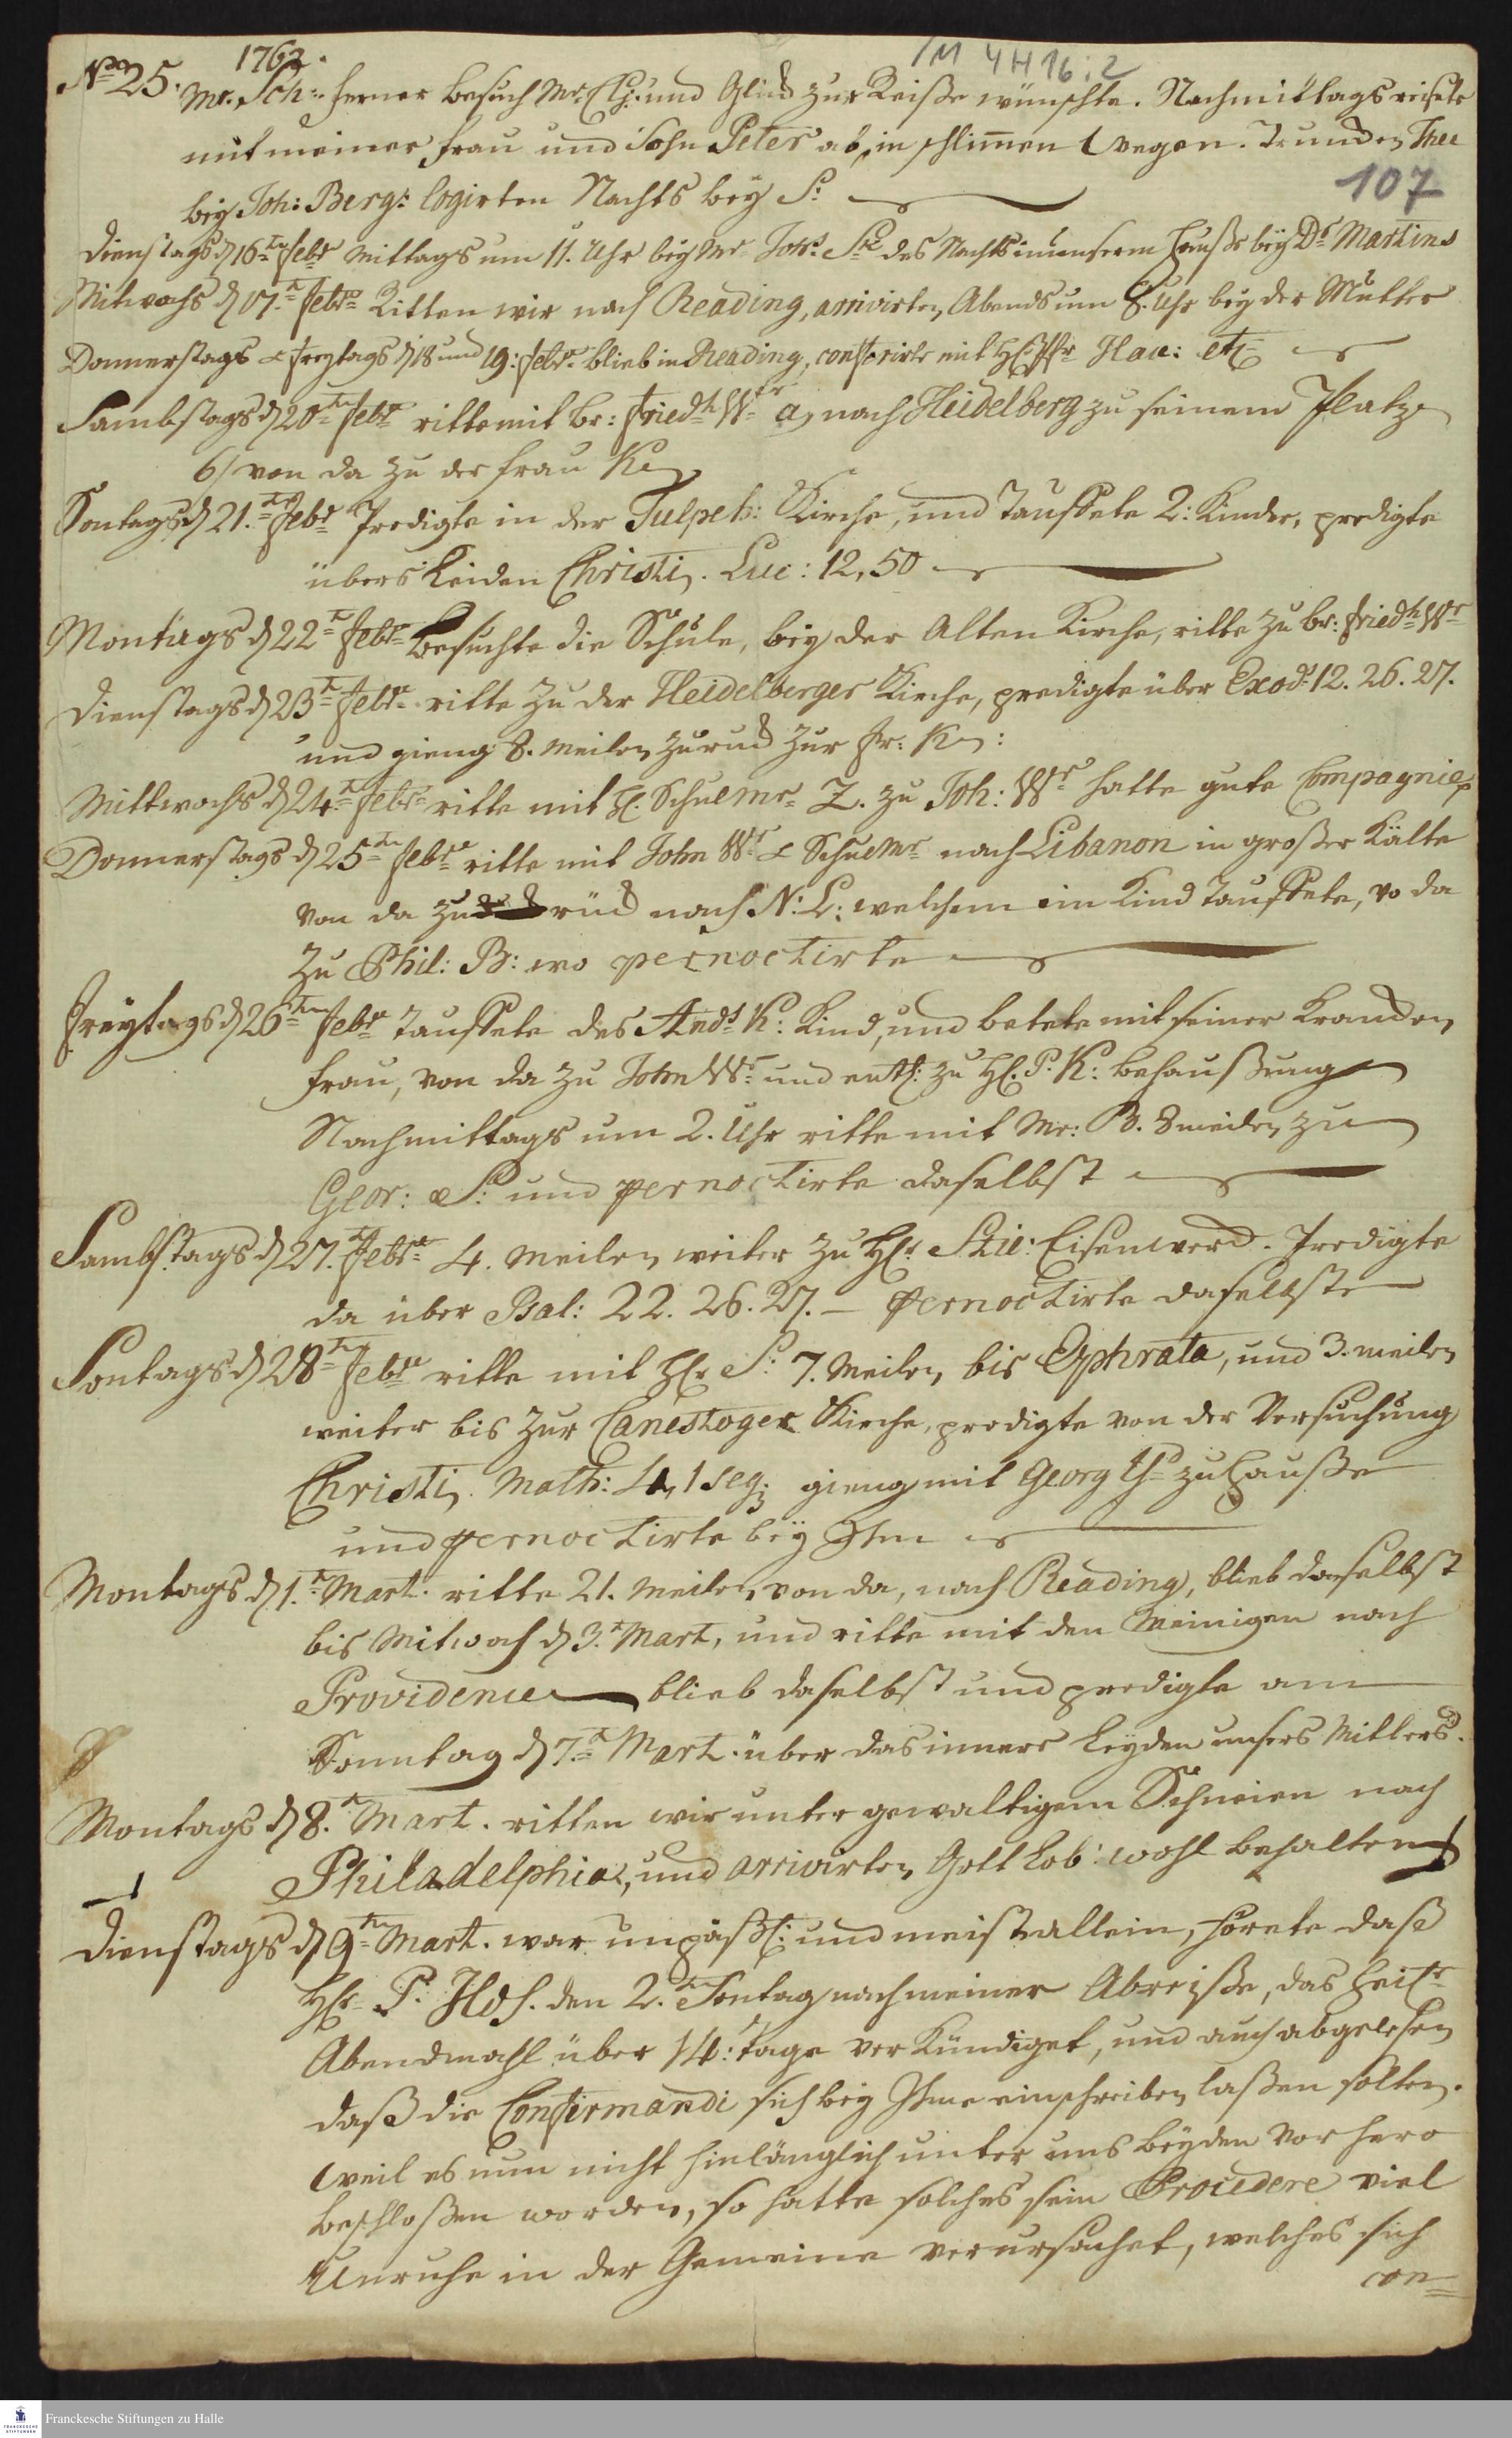 No 25. 1762.
/M 4 H 16:2
Mr. Sch: ferner Besuch Mr. und Glück zur Reiße wünschte. Nachmittags reisete
mit meiner frau und Sohn Peter ab, in schlimen Wegen. Truncken Thee
107
bey Joh: Berg: logirten Nachts bey S:
Dienstags d 16ten Febr Mittags um 11. Uhr bey Mr des Nachts in unserm Hauße bey Dr Martins
Mitwochs d 17.t Febr Ritten wir nach Reading, arrivirten Abends um 8. Uhr bey der Mutter
Donnerstags & freytags d 18 und 19: Febr. blieb in Reading, conferirte mit Hau: etc
Sambstags d 20ten Febr ritte mit Br: Friedh Wr a, nach Heidelberg zu seinem Platze
b/ von da zu der frau Ke
Sontags d 21.ten Febr Predigte in der Tulpeh: Kirche, und Tauffete 2: Kinder, predigte
übers Leiden Christi. Luc: 12, 50
Montags d 22t Febr Besuchte die Schule, bey der Alten Kirche, ritte zu br: Friedh Wr
Dienstags d 23t Febr. ritte zu der Heidelberger Kirche, predigte über Exod: 12. 26. 27.
und gieng 8. Meilen zurück zur Fr: K:
Mittwochs d 24t Febr ritte mit H. Schulmr Z. zu Joh: Wr hatte gute Compagnie
Donnerstags d 25ten Febr ritte mit John Wr & Schulmr nach Libanon in großer Kälte
von da zurück nach N: L: welchem ein Kind Tauffete, vo da
zu Phil: B: wo pernoctirte
Freytags d 26ten Febr Tauffete des Andr K: Kind, und betete mit seiner Krancken
frau, von da zu John Wr und entl: zu H. P: K: behaußung
Nachmittags um 2. Uhr ritte mit Mr: B. 8 meilen zu
Geor: S: und pernoctirte daselbst
Sambstags d 27.t Febr 4. Meilen weiter zu Hr Stie: Eisenwerck. Predigte
da über Psal: 22. 26. 27. — pernoctirte daselbst
Sontags d 28ten Febr ritte mit Hr S: 7. Meilen bis Ephrata, und 3. meilen
weiter bis zur Canestoger Kirche, predigte von der Versuchung
Christi. Math: 4, 1 seq; gieng mit Georg zu Hauße
und pernoctirte bey Ihm
Montags d 1.t Mart. ritte 21. Meilen von da, nach Reading, blieb daselbst
bis Mitwoch d 3.t Mart, und ritte mit den Meinigen nach
Providence blieb daselbst und predigte am
Sonntag d 7.t Mart. über das innere Leyden unsers Mitlers.
Montags d 8.t Mart. ritten wir unter gewaltigem Schneien nach
Philadelphia, und arrivirten Gott Lob: wohl behalten
Dienstags d 9ten Mart. war unpäßl: und meist allein, hörete daß
Hr P. Hds. den 2.t Sontag nach meiner Abreiße, das heilr
Abendmahl über 14: tage verkündiget, und auch abgelesen
daß die Confirmandi sich bey Ihme einschreiben laßen solten.
Weil es nun nicht hinlänglich unter uns beyden vorhero
beschloßen worden, so hatte solches sein Procedere viel
Unruhe in der Gemeine verursachet, welches sich
con=
Franckesche Stiftungen zu Halle